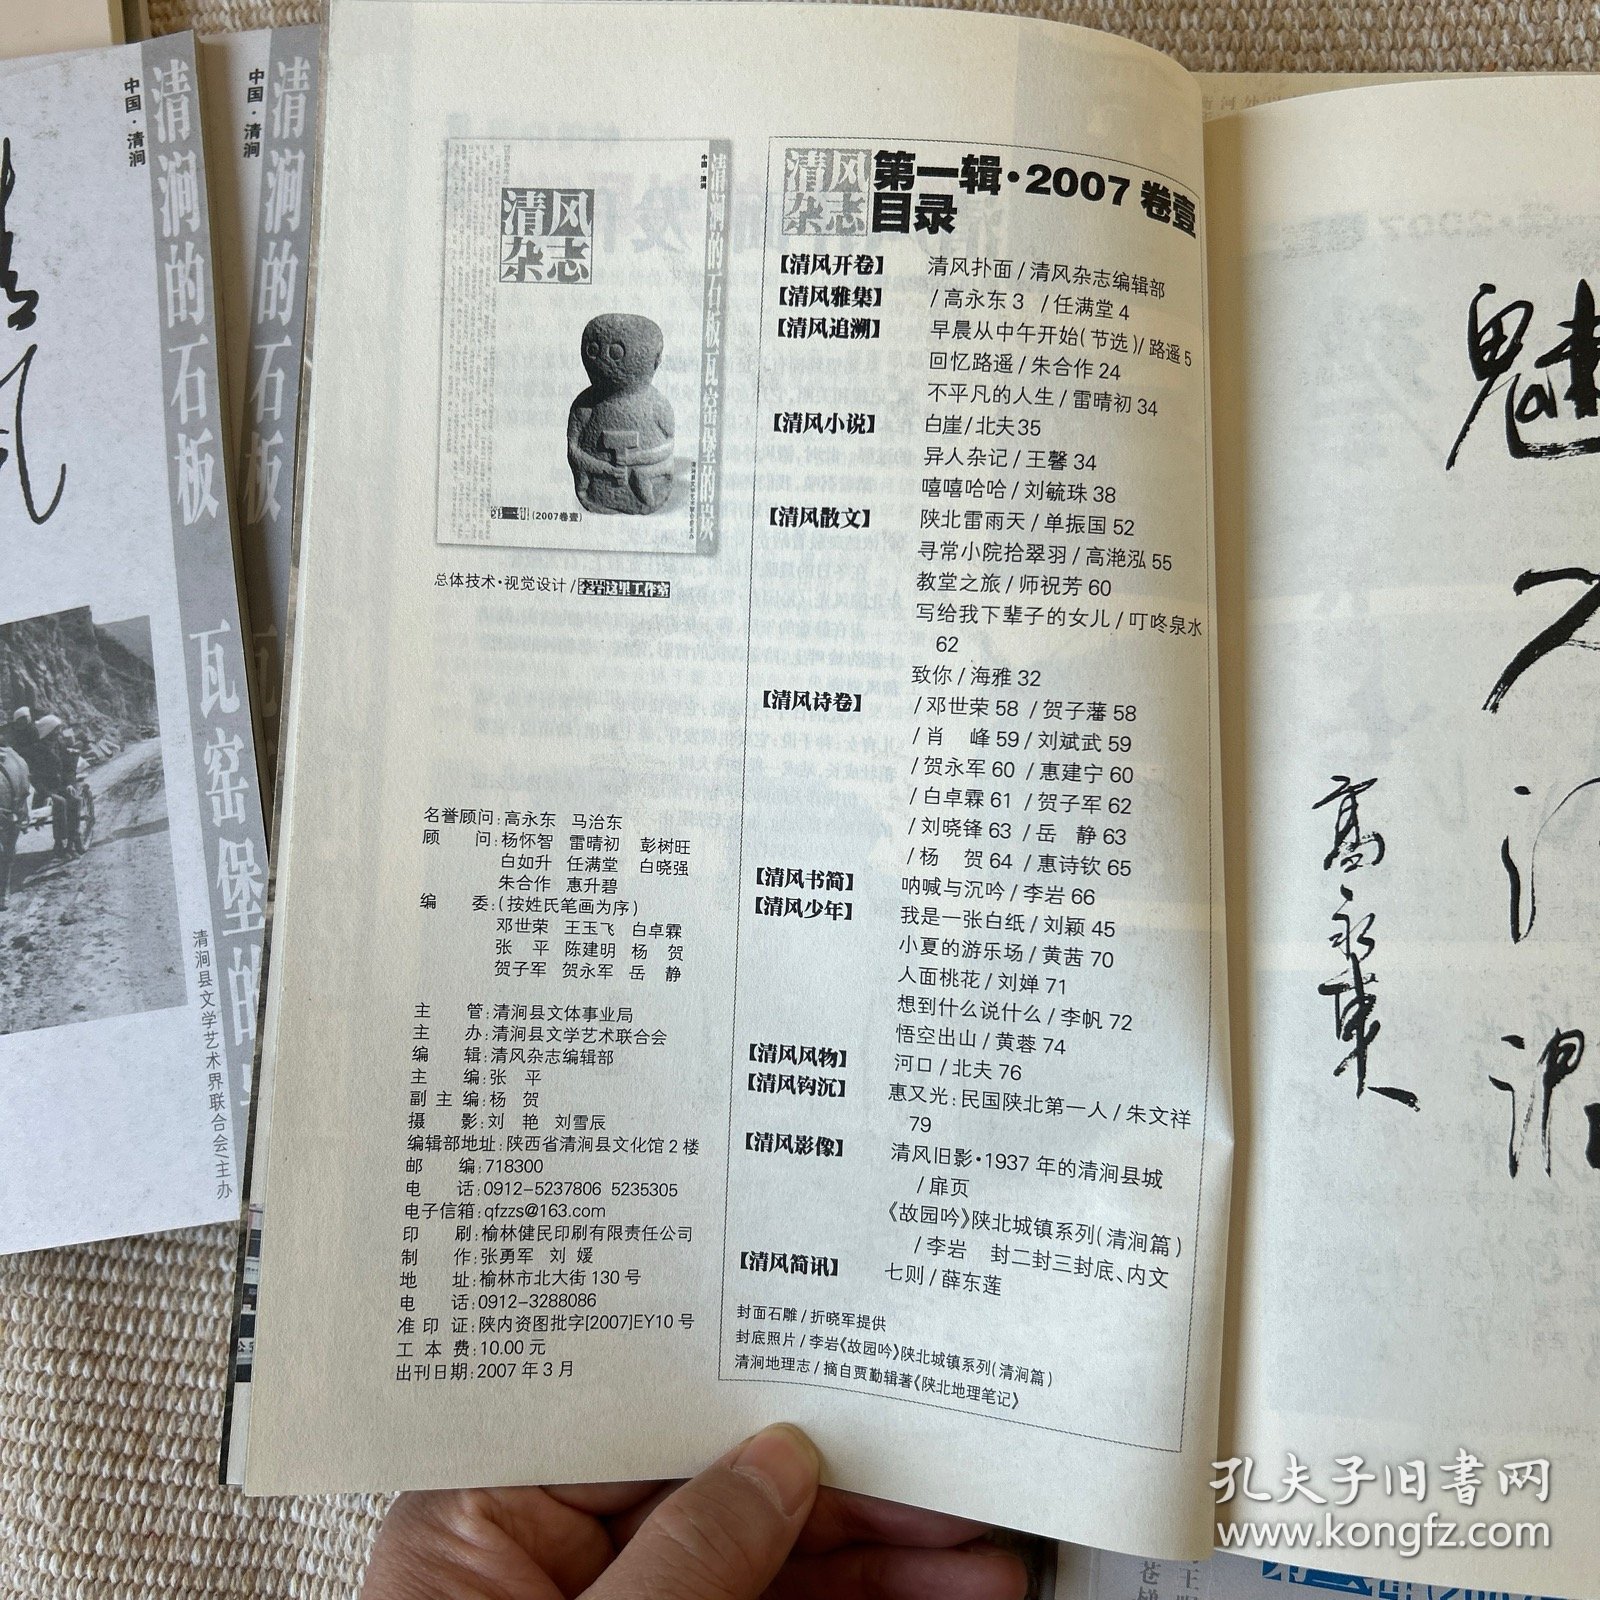 中国·清涧
清涧的石板
瓦窑堡的
清涧县文学艺术界联合会/主办
中国·清涧
清涧的石板
清风
杂志
中国·清涧
清涧的石板瓦窑堡的炭
第一辑(2007卷壹)
总体技术·视觉设计/
名誉顾问:高永东 马治东
顾 问:杨怀智 雷晴初 彭树旺
白如升 任满堂 白晓强
朱合作 惠升碧
编 委:(按姓氏笔画为序)
邓世荣 王玉飞 白卓霖
张 平 陈建明 杨 贺
贺子军 贺永军 岳 静
主 管:清涧县文体事业局
主 办:清涧县文学艺术联合会
编 辑:清风杂志编辑部
主 编:张 平
副主编:杨 贺
摄 影:刘 艳 刘雪辰
编辑部地址:陕西省清涧县文化馆2楼
邮 编:718300
电 话:0912-5237806 5235305
电子信箱:qfzzs@163.com
印 刷:榆林健民印刷有限责任公司
制 作:张勇军 刘 媛
地 址:榆林市北大街130号
电 话:0912-3288086
准印证:陕内资图批字[2007]EY10号
工本费:10.00元
出刊日期:2007年3月
清风
杂志
第一辑·2007卷壹
目录
【清风开卷】 清风扑面/清风杂志编辑部
【清风雅集】 /高永东3 /任满堂4
【清风追溯】 早晨从中午开始(节选)/路遥5
回忆路遥/朱合作24
不平凡的人生/雷晴初34
【清风小说】 白崖/北夫35
异人杂记/王馨34
嘻嘻哈哈/刘毓珠38
【清风散文】 陕北雷雨天/单振国52
寻常小院拾翠羽/高滟泓55
教堂之旅/师祝芳60
写给我下辈子的女儿/叮咚泉水
62
致你/海雅32
【清风诗卷】 /邓世荣58 /贺子藩58
/肖 峰59 /刘斌武59
/贺永军60 /惠建宁60
/白卓霖61 /贺子军62
/刘晓锋63 /岳 静63
/杨 贺64 /惠诗钦65
【清风书简】 呐喊与沉吟/李岩66
【清风少年】 我是一张白纸/刘颖45
小夏的游乐场/黄茜70
人面桃花/刘婵71
想到什么说什么/李帆72
悟空出山/黄蓉74
【清风风物】 河口/北夫76
【清风钩沉】 惠又光:民国陕北第一人/朱文祥
79
【清风影像】 清风旧影·1937年的清涧县城
/扉页
《故园吟》陕北城镇系列(清涧篇)
/李岩 封二封三封底、内文
【清风简讯】 七则/薛东莲
封面石雕/折晓军提供
封底照片/李岩《故园吟》陕北城镇系列(清涧篇)
清涧地理志/摘自贾勤辑著《陕北地理笔记》
魅
高永东
孔夫子旧书网
www.kongfz.com